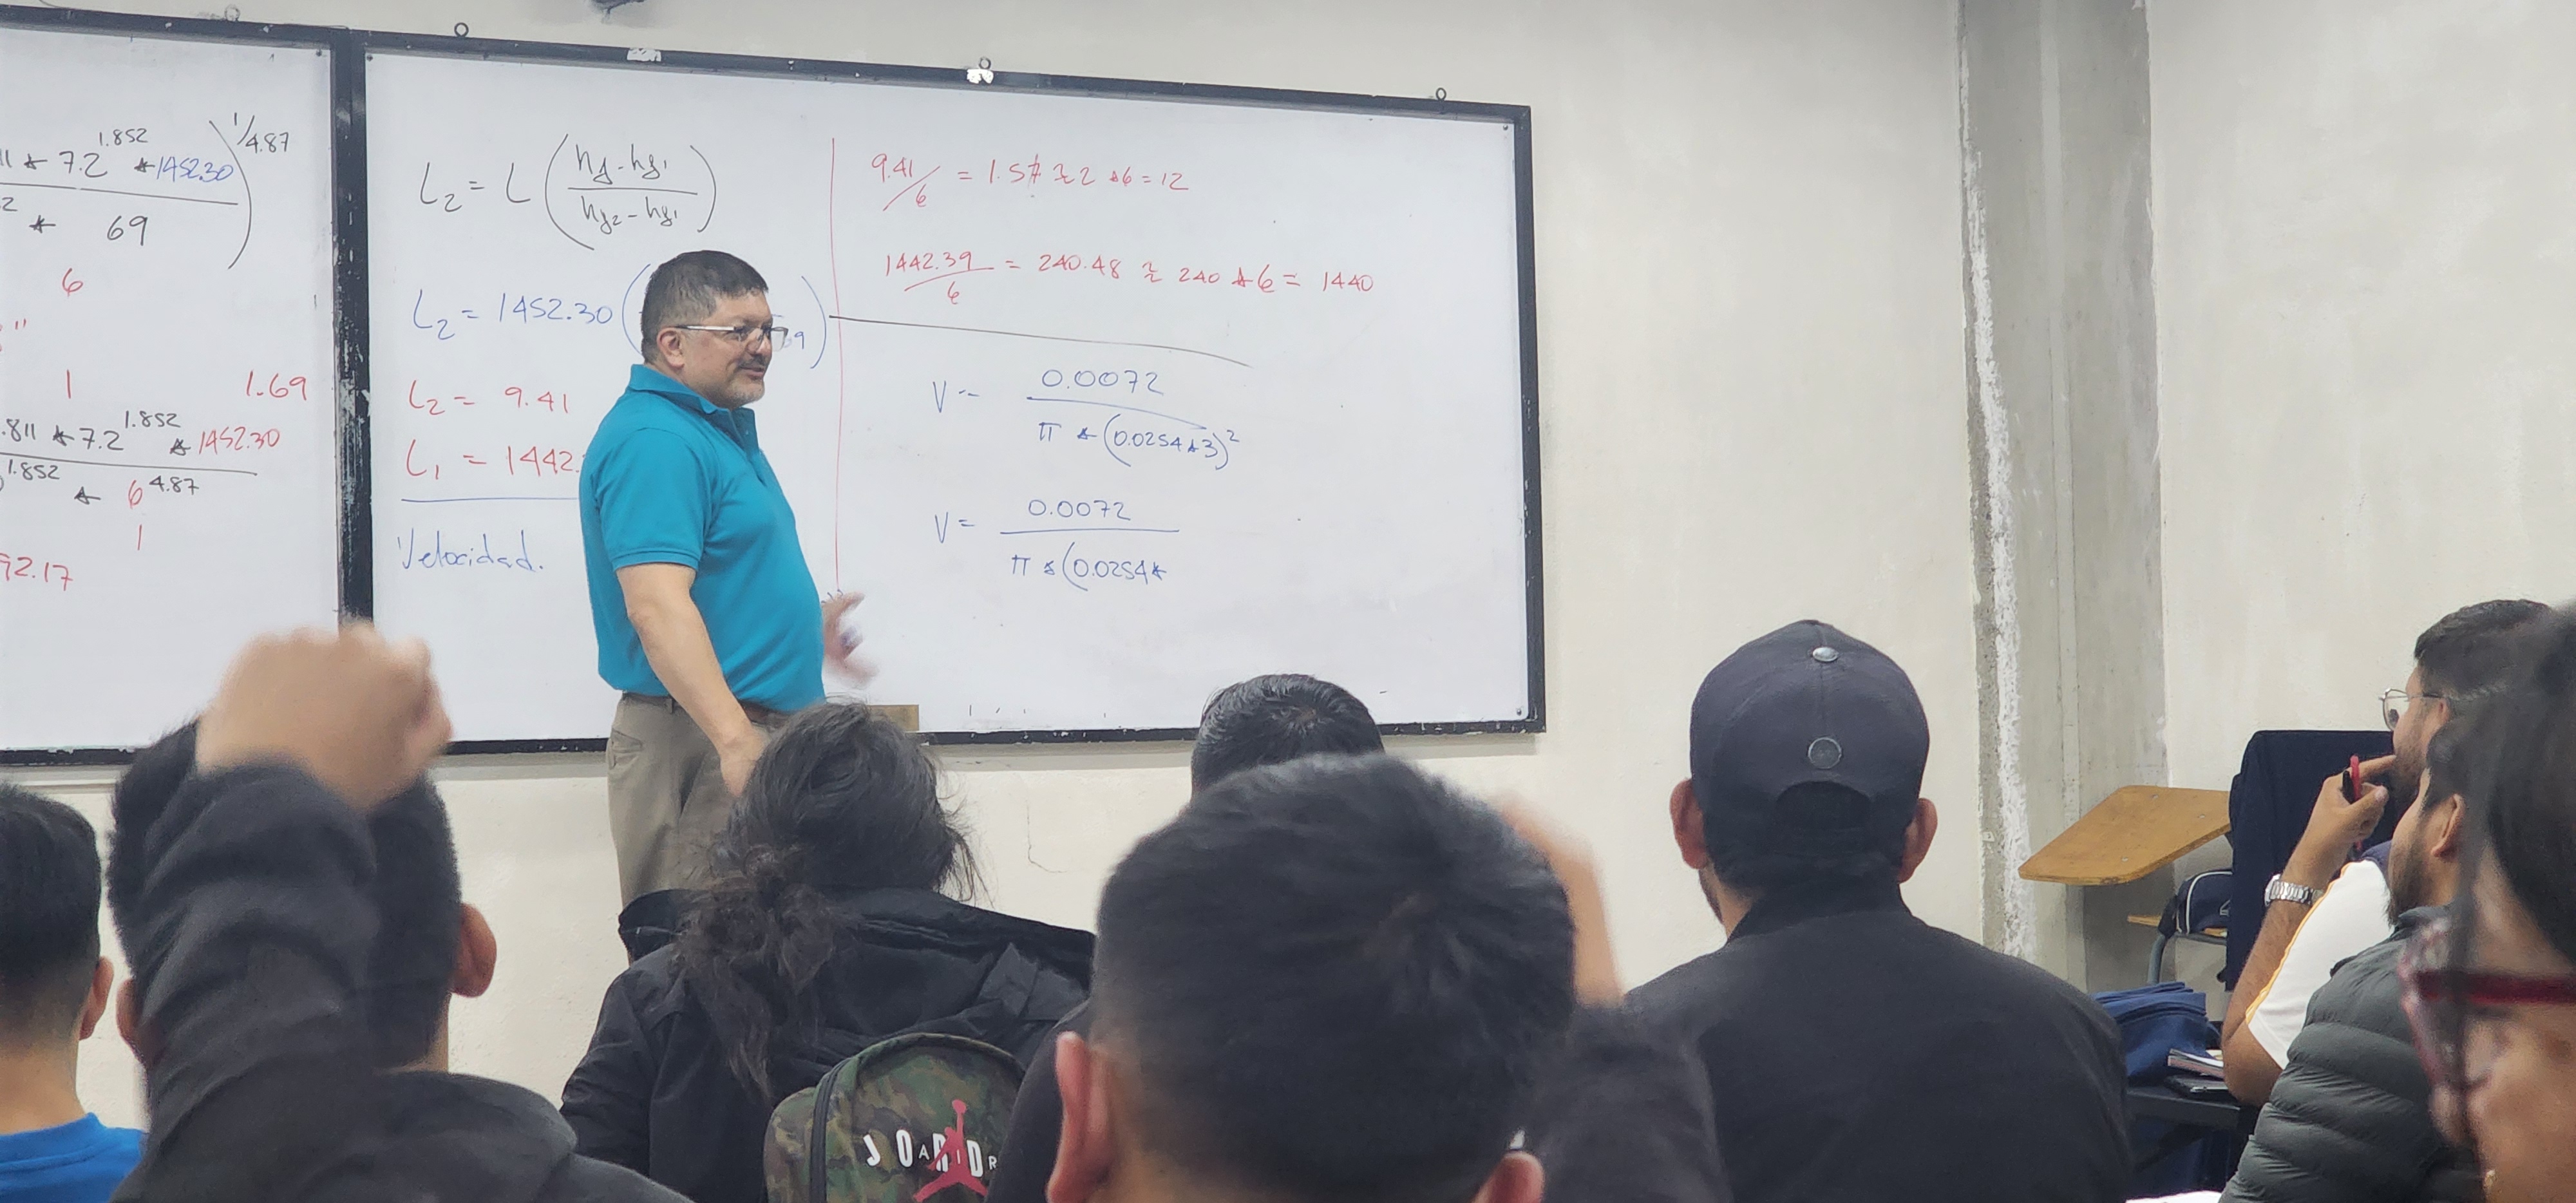 11 * 7.2^1.852 * 1452.30
1/4.87
2 * 69
6
"
1
1.69
.811 * 7.2^1.852 * 1452.30
1.852 * 6^4.87
1
92.17
L2 = L (hf - hf1
hf2 - hf1)
L2 = 1452.30 (
9)
L2 = 9.41
L1 = 1442.
Velocidad.
9.41/6 = 1.57 ≈ 2 * 6 = 12
1442.39/6 = 240.48 ≈ 240 * 6 = 1440
V = 0.0072
π * (0.0254 * 3)^2
V = 0.0072
π * (0.0254 *
JORD
AIR